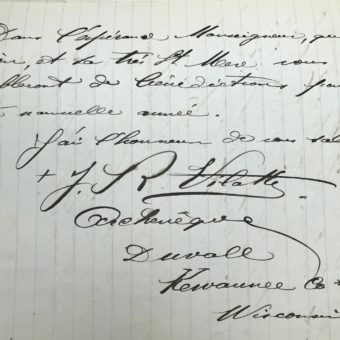 Dans l'espérance Monseigneur, que
et sa très Ste Mère vous
bleront de bénédictions pour
nouvelle année.
J'ai l'honneur de vous sal
+ J. R. Vilatte
Archevêque
Duvall
Kewaunee Co
Wisconsin